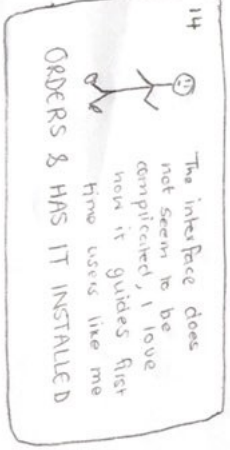 14
The interface does
not seem to be
complicated, I love
how it guides first
time users like me
ORDERS & HAS IT INSTALLED